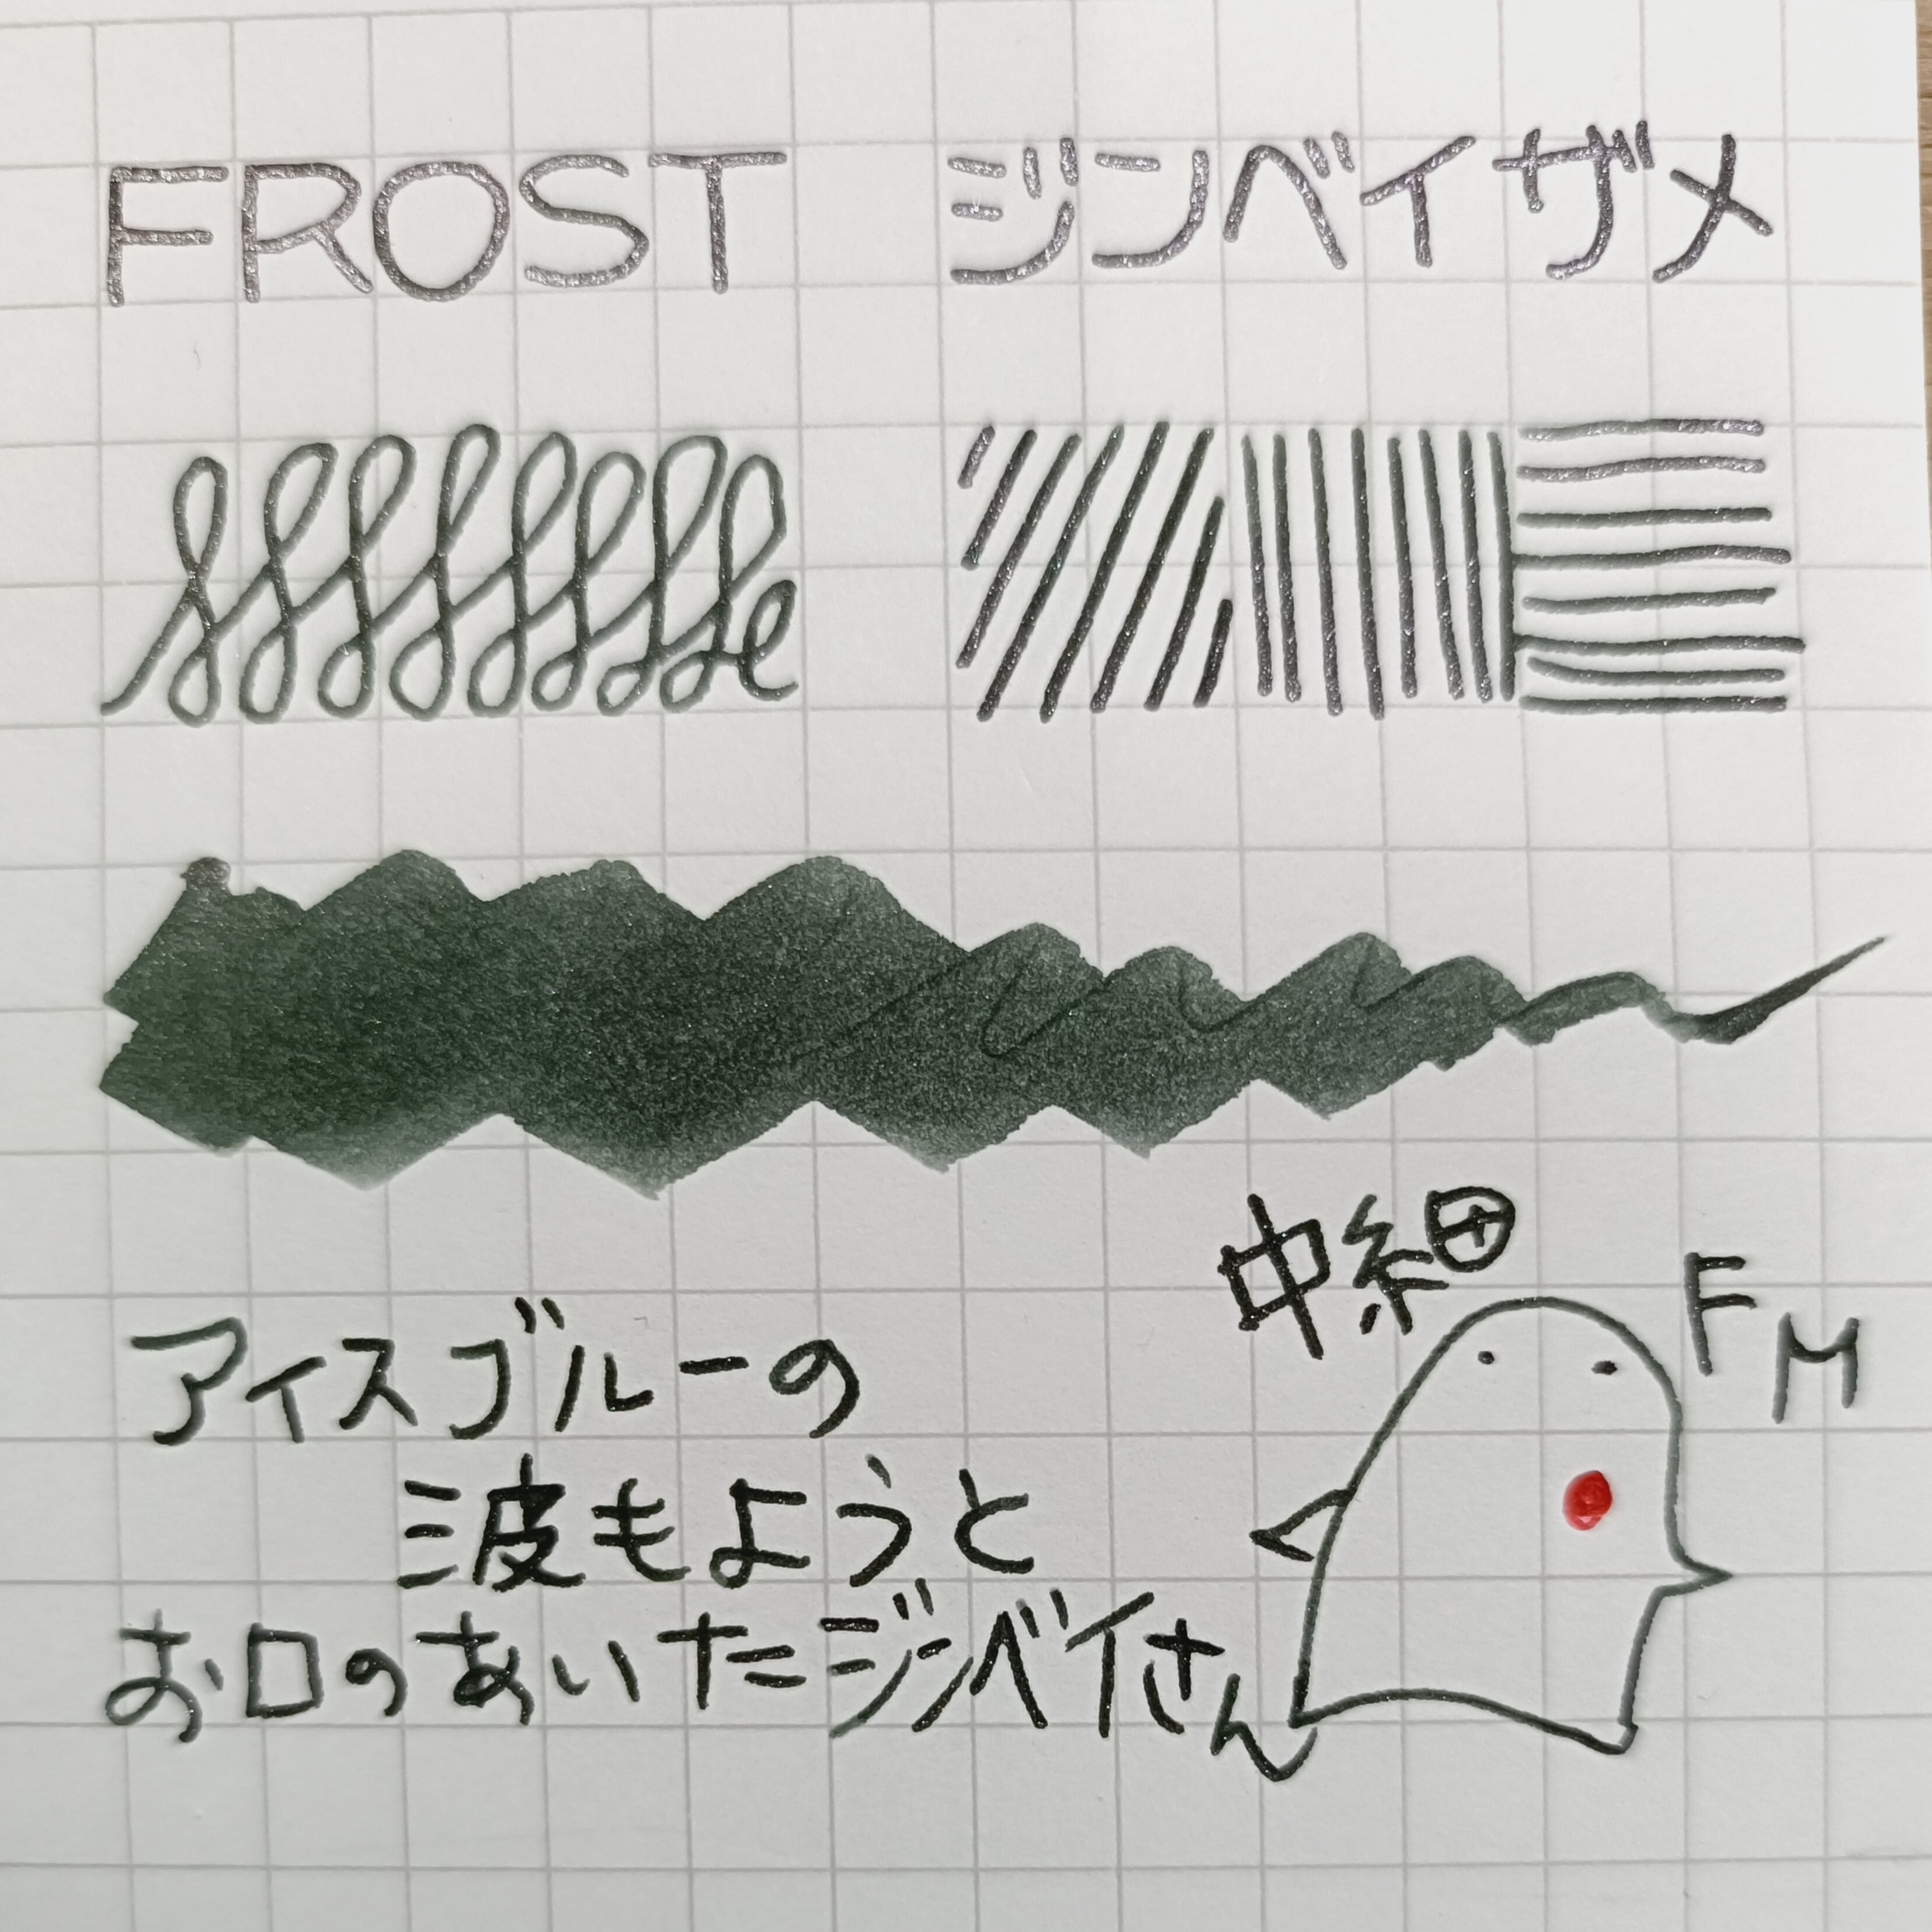 FROST ジンベイザメ
中細
FM
アイスブルーの
波もようと
お口のあいたジンベイさん